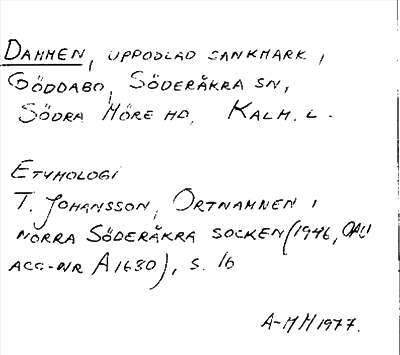 DAMMEN, UPPODLAD SANKMARK I
GÖDDABO, SÖDERÅKRA SN,
SÖDRA MÖRE HD, KALM. L.
ETYMOLOGI
T. JOHANSSON, ORTNAMNEN I
NORRA SÖDERÅKRA SOCKEN (1946, OAU
ACC-NR A1680), S. 16
A-MH 1977.